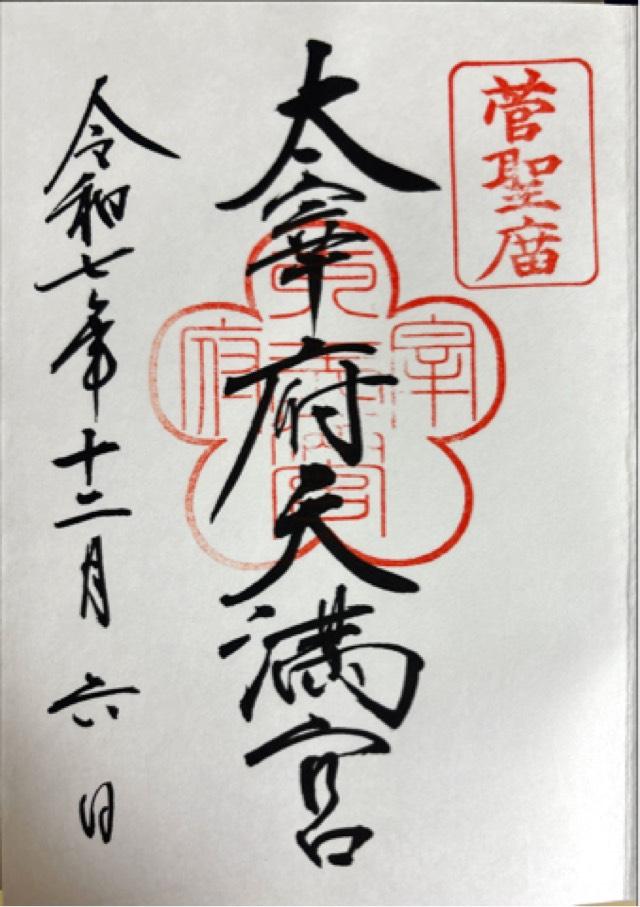 菅聖廟
太宰府天満宮
令和七年十二月六日